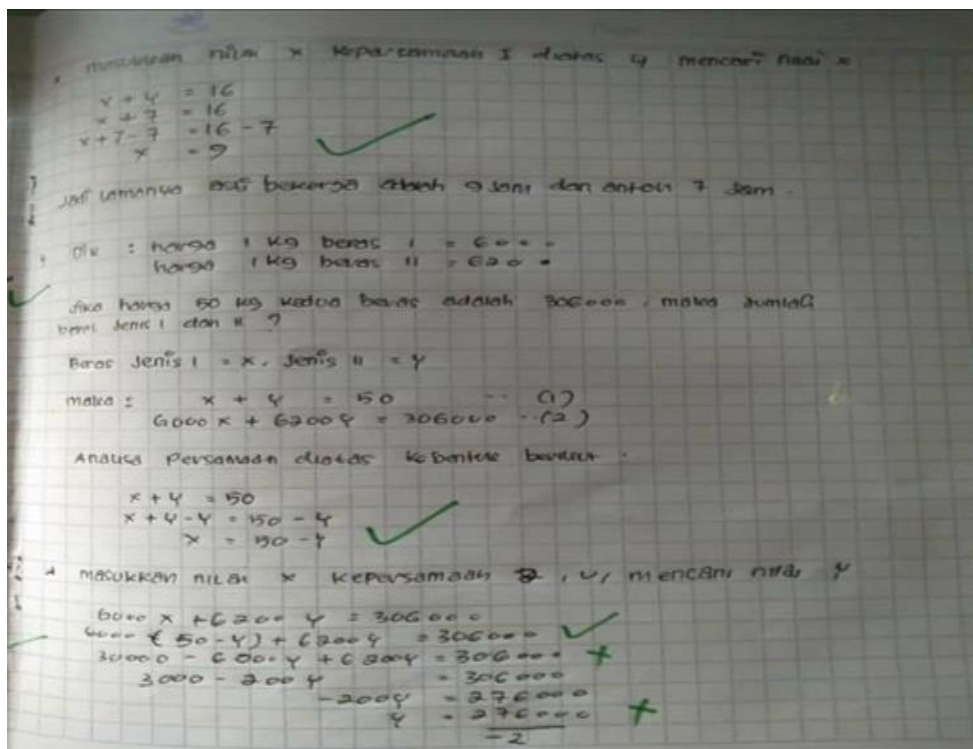 masukkan nilai x kepersamaan I diatas u/ mencari nilai x
x + y = 16
x + 7 = 16
x + 7 - 7 = 16 - 7
x = 9
Jadi lamanya bekerja 9 jam dan anton 7 jam.
Dik : harga 1 kg beras I = 6000
harga 1 kg beras II = 6200
Jika harga 50 kg kedua beras adalah 306000, maka jumlah
beras Jenis I dan II ?
Beras Jenis I = x. Jenis II = y
maka : x + y = 50 ... (1)
6000 x + 6200 y = 306000 ... (2)
Analisa Persamaan diatas kebentuk berikut.
x + y = 50
x + y - y = 50 - y
x = 50 - y
masukkan nilai x kepersamaan 2, u/ mencari nilai y
6000 x + 6200 y = 306000
6000 (50 - y) + 6200 y = 306000
30000 - 6000 y + 6200 y = 306000
3000 - 200 y = 306000
-200 y = 276000
y = 276000
-2